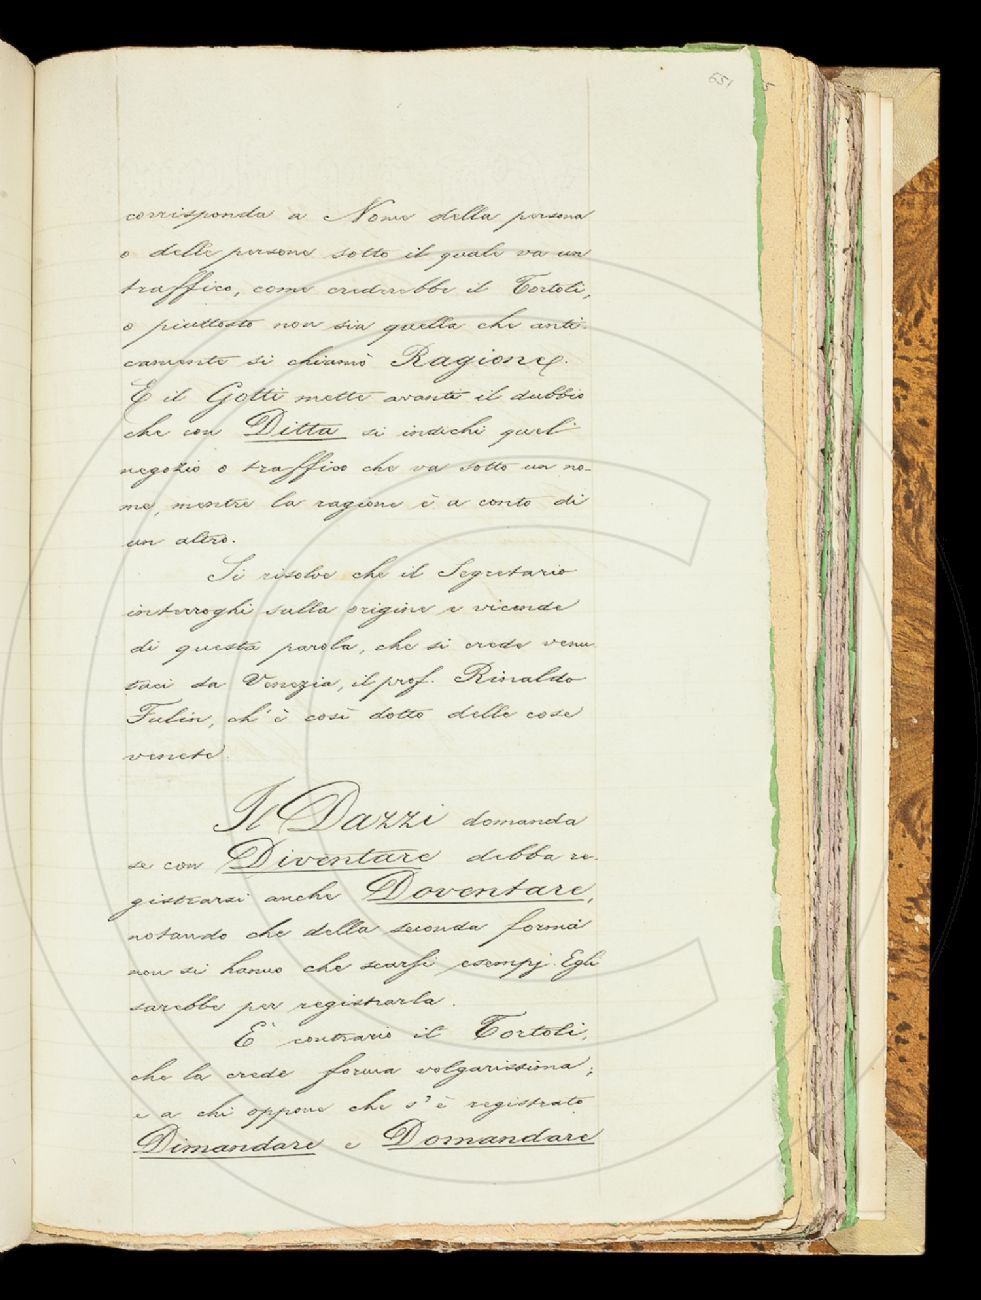 651
corrisponda a Nome della persona
o delle persone sotto il quale va un
traffico, come crederebbe il Tortoli,
o piuttosto non sia quella che anti-
camente si chiamò Ragione.
E il Gotti mette avanti il dubbio
che con Ditta si indichi quel
negozio o traffico che va sotto un no-
me, mentre la ragione è a conto di
un altro.
Si risolve che il Segretario
interroghi sulla origine e vicende
di questa parola, che si crede venu
taci da Venezia, il prof. Rinaldo
Fulin, ch'è così dotto delle cose
venete.
Il Dazzi domanda
se con Diventare debba re-
gistrarsi anche Doventare,
notando che della seconda forma
non si hanno che scarsi esempj. Egli
sarebbe per registrarla.
È contrario il Tortoli,
che la crede forma volgarissima;
e a chi oppone che s'è registrato
Dimandare e Domandare